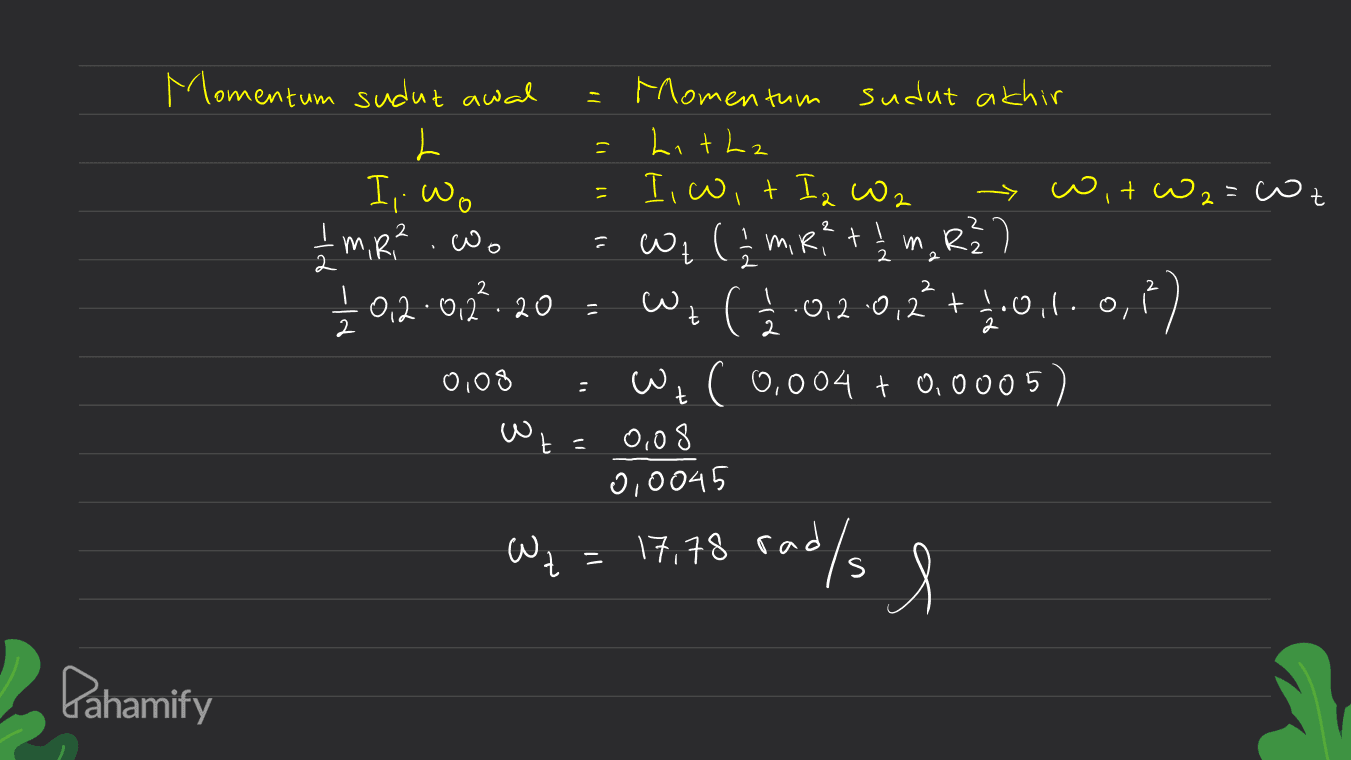 Momentum sudut awal = Momentum sudut akhir
L = L₁ + L₂
I₁ . ω₀ = I₁ ω₁ + I₂ ω₂ → ω₁ + ω₂ = ωt
1/2 m₁R₁² . ω₀ = ωt (1/2 m₁R₁² + 1/2 m₂R₂²)
1/2 0,2 . 0,2² . 20 = ωt (1/2 . 0,2 . 0,2² + 1/2 . 0,1 . 0,1²)
0,08 = ωt (0,004 + 0,0005)
ωt = 0,08 / 0,0045
ωt = 17,78 rad/s
Pahamify